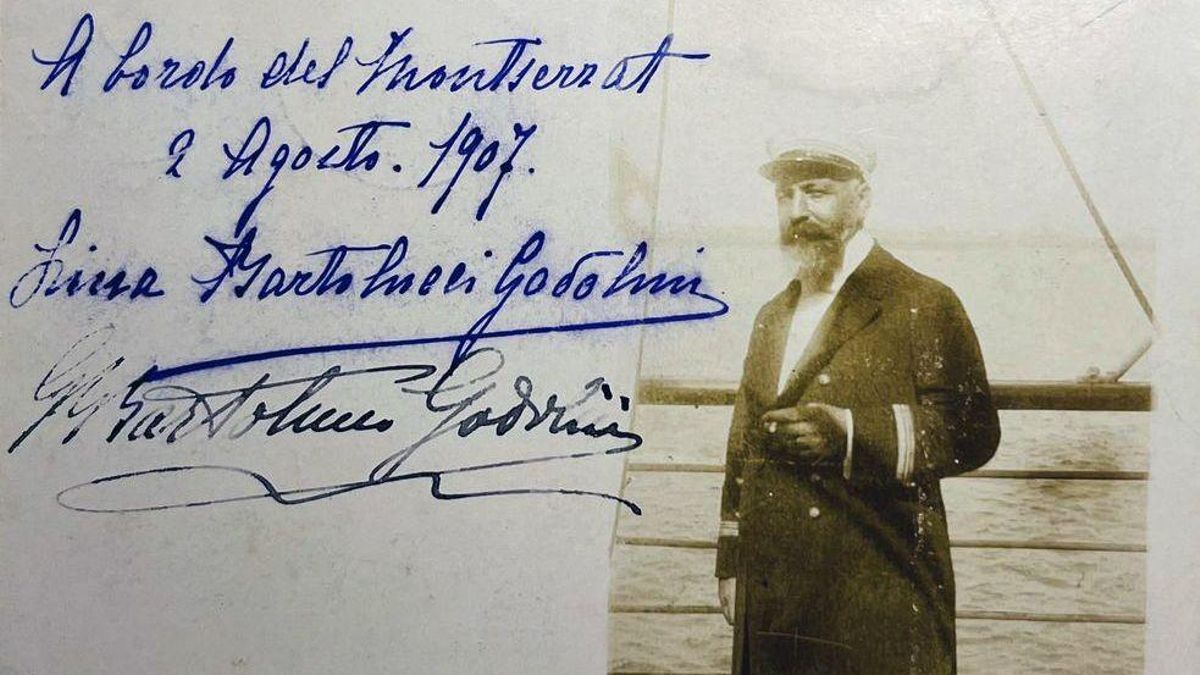 A bordo del Montserrat
2 Agosto. 1907.
Lina Bartolucci Godolini
Bartolucci Godolini